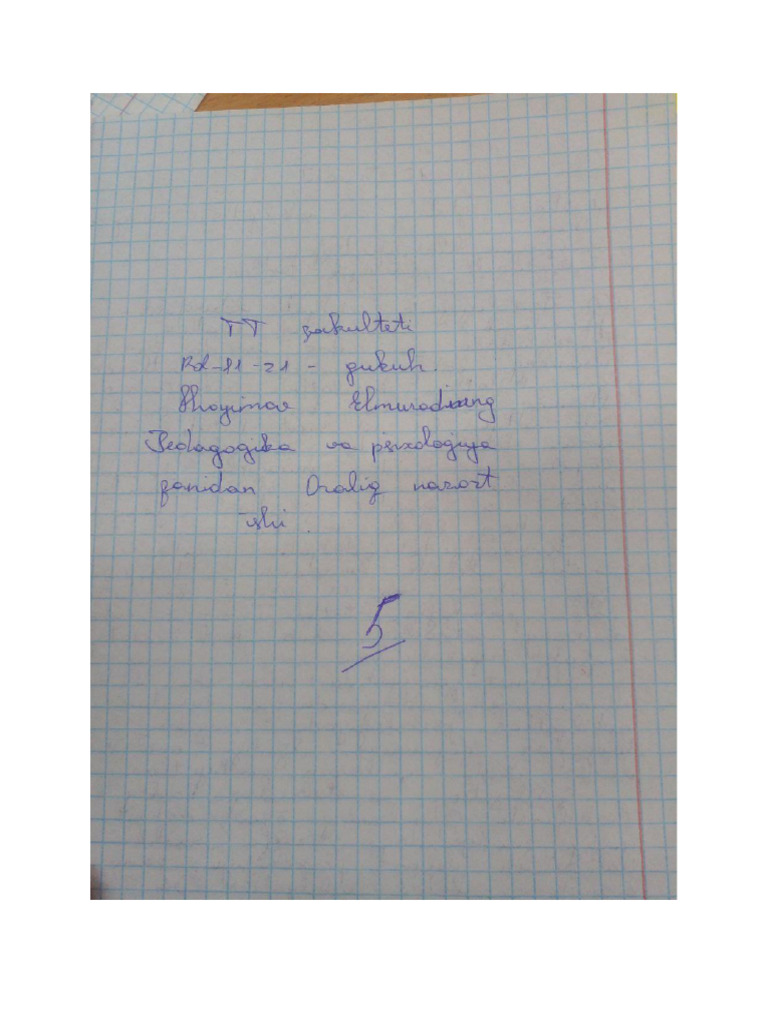 TT fakulteti
Rd-11-21 - guruh.
Shoyimov Elmurodning
Pedagogika va psixologiya
fanidan Oraliq nazort
ishi.
5